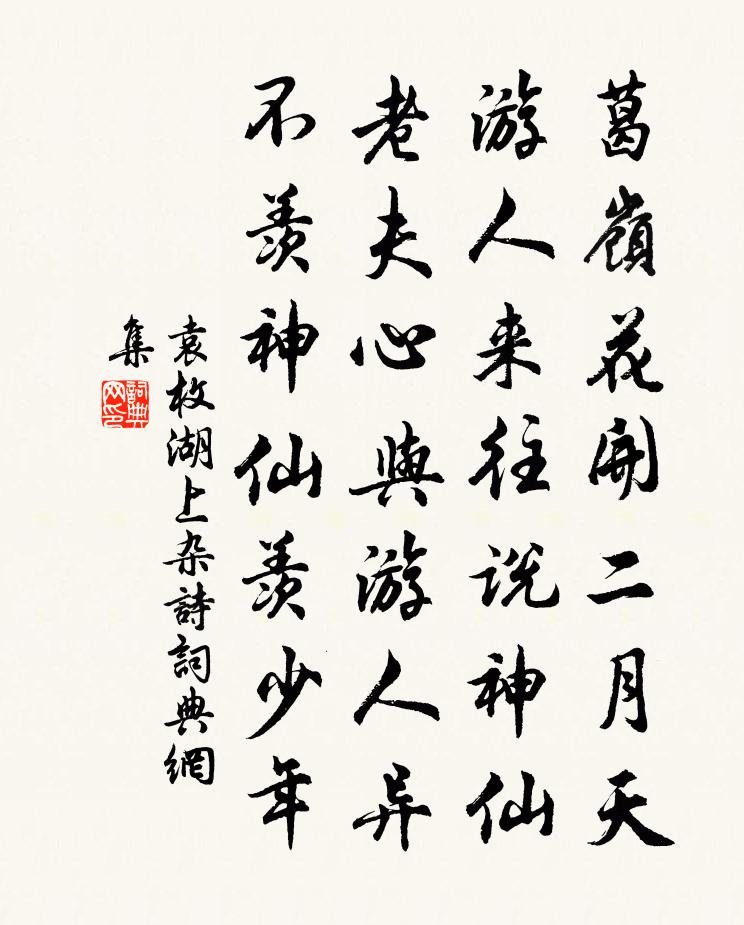 葛嶺花開二月天
游人来往説神仙
老夫心與游人异
不羨神仙羨少年
袁枚湖上杂詩詞典網
集
詞典网印